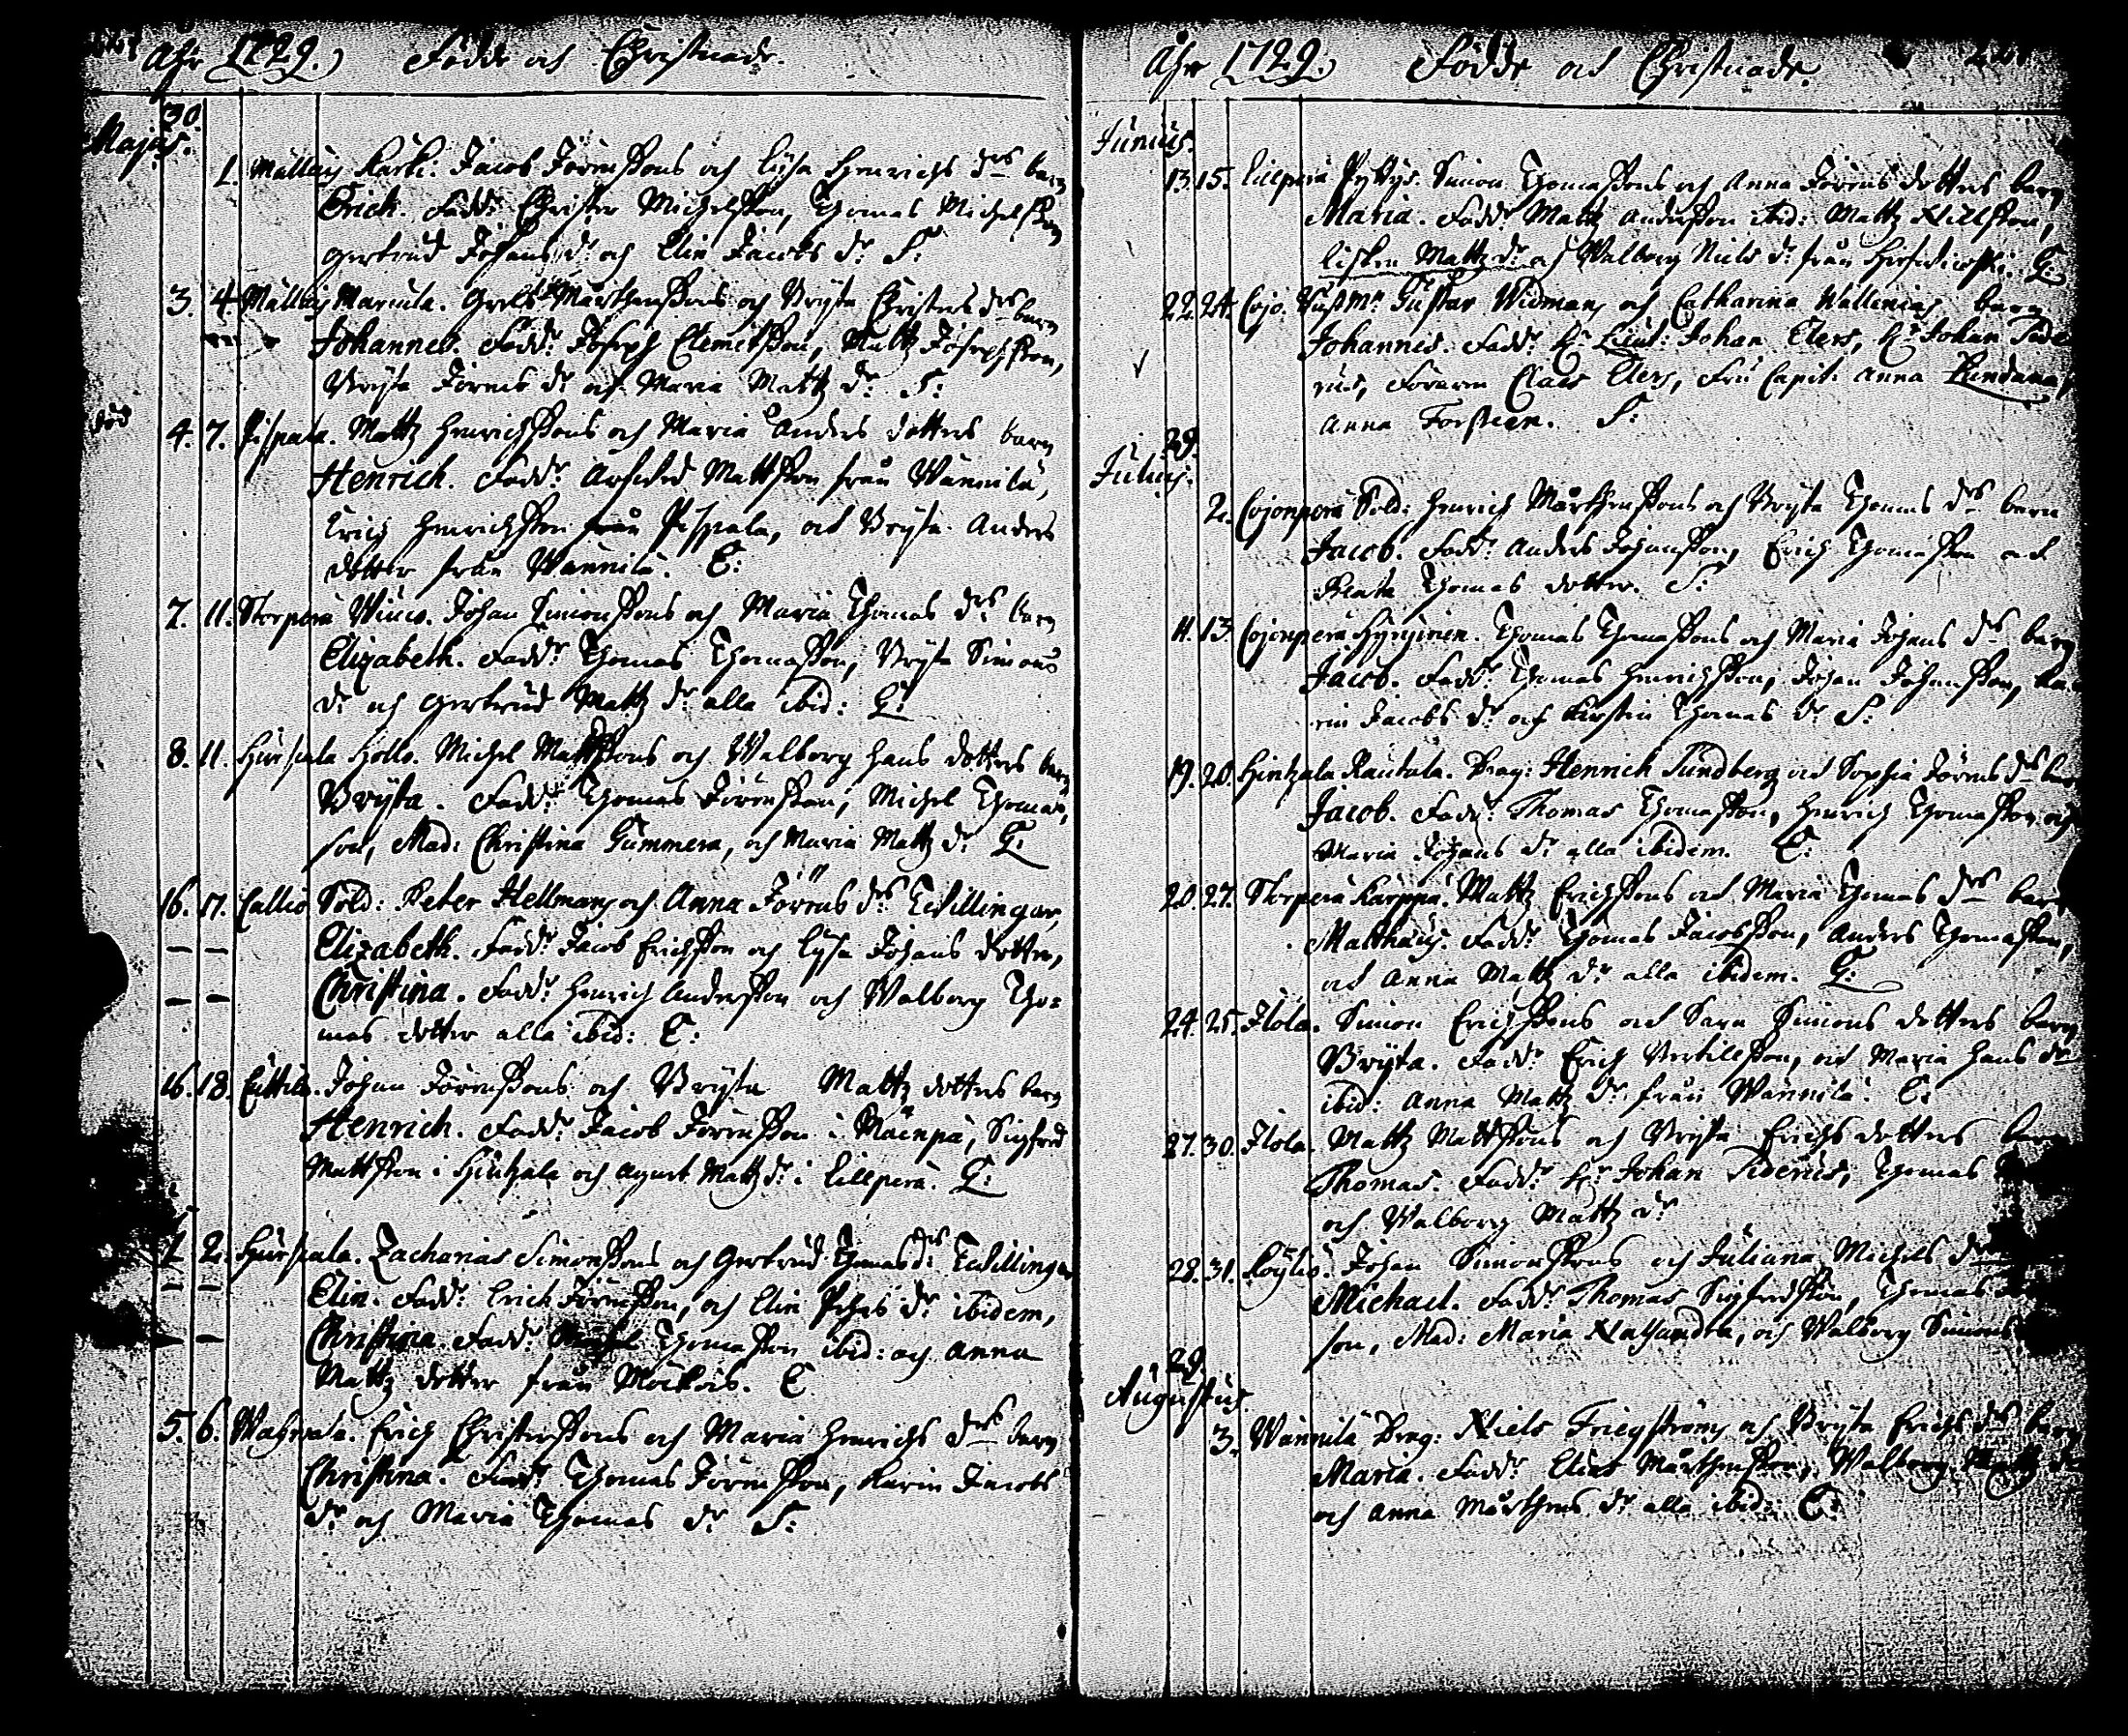 Åhr 1729. Födde och Christnade.
30.
Majus.
1. Mällais Karki. Jacob Jörenssons och Lijsa Henrichs drs barn
Erick. Fadd: Christer Michelsson, Thomas Michelsson
Gertrud Johans dr och Elin Jacobs dr. S:
3. 4. Mällais Marcula. Mårthenssons och Bryta Christers drs barn
Johannes. Fadd: Joseph Clemetsson, Mattz Josephsson,
Bryta Jörens dr och Maria Mattz dr. S:
död 4. 7. Pispala. Mattz Henrichssons och Maria Anders dotters barn
Henrich. Fadd: Arfwid Mattsson från Wännilä,
Erich Henrichsson från Pispala, och Bryta Anders
dotter från Wännilä. C:
7. 11. Storperä Simonssons och Maria Thomas drs barn
Elizabeth. Fadd: Thomas Thomasson, Bryta Simons
dr och Gertrud Mattz dr alla ibid: G:
8. 11. Hursala Hollo. Michel Mattssons och Walborg Hans dotters barn
Bryta. Fadd: Thomas Jörensson, Michel Thomas
son, Mad: Christina Gummera, och Maria Mattz dr. G:
16. 17. Callio Sold: Peter Hellmans och Anna Jörens drs Twillingar,
— — Elizabeth. Fadd: Jacob Erichsson och Lijsa Johans dotter,
— — Christina. Fadd: Henrich Andersson och Walborg Tho=
mas dotter alla ibid: C:
16. 18. Euttila. Johan Jörenssons och Bryta Mattz dotters barn
Henrich. Fadd: Jacob Jörensson i Mäenpä, Sigfred
Mattsson i Hintzala och Agnet Mattz dr i Lillperä. G:
1. 2. Hursala. Zacharias Simonssons och Gertrud Thomas drs Twillingar
— — Elin. Fadd: Erich Jörensson, och Elin dr ibidem,
— — Christina. Fadd: Thomasson ibid: och Anna
Mattz dotter från C
5. 6. Wahwala. Erich Christerssons och Maria Henrichs drs barn
Christina. Fadd: Thomas Jörensson, Karin Jacobs
dr och Maria Thomas dr. S:
Åhr 1729. Födde och Christnade.
Junius.
13. 15. Lillperä Pyttys. Simon Thomassons och Anna Jörens dotters barn
Maria. Fadd: Mattz Andersson ibid: Mattz Nillsson,
Lisken Mattz dr och Walborg Niels dr från G:
22. 24. Cojo. Gustav Widmans och Catharina Wallenias barn
Johannes. Fadd: Hr Lieut: Johan Elers, Hr Johan Tide
rus, Claes Elers, Fru Capit: Anna
Anna Forsteen. S:
29.
Julius.
2. Cojonperä Sold: Henrich Mårthenssons och Bryta Thomas drs barn
Jacob. Fadd: Anders Johansson, Erich Thomasson och
Beata Thomas dotter. S:
11. 13 Cojonperä Hyrynen. Thomas Thomassons och Maria Johans drs barn
Jacob. Fadd: Thomas Henrichsson, Johan Johansson, Ka
rin Jacobs dr och Kirstin Thomas dr. S:
19. 20. Hintzala Rautala. Drag: Henrich Sundberg och Sophia Jörens drs barn
Jacob. Fadd: Thomas Thomasson, Henrich Thomasson och
Maria Johans dr alla ibidem. C:
20. 27. Storperä Karppa. Mattz Erichssons och Maria Thomas drs barn
Matthaus. Fadd: Thomas Jacobsson, Anders Thomasson,
och Anna Mattz dr alla ibidem. G:
24. 25. Ilola. Simon Erichssons och Sara Simons dotters barn
Bryta. Fadd: Erich Bertilsson, och Maria Hans dr
ibid: Anna Mattz dr från Wännilä. C:
27. 30. Ilola. Mattz Mattssons och Bryta Erichs dotters barn
Thomas. Fadd: Hr Johan Tiderus, Thomas
och Walborg Mattz dr
28. 31. Löyliö. Johan Simonssons och Juliana Michels drs
Michael. Fadd: Thomas Sigfredsson, Thomas
son, Mad: Maria Wallsandra, och Walborg Simons
29.
Augustus.
3. Wännilä Drag: Niels Friegströms och Bryta Erichs drs barn
Maria. Fadd: Elias Mårthensson, Walborg Mattz dr
och Anna Mårthens dr alla ibid: C: